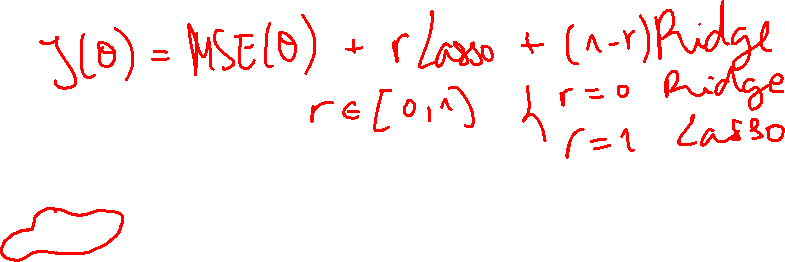 J(θ) = MSE(θ) + r Lasso + (1-r) Ridge
r ∈ [0,1] { r=0 Ridge
r=1 Lasso